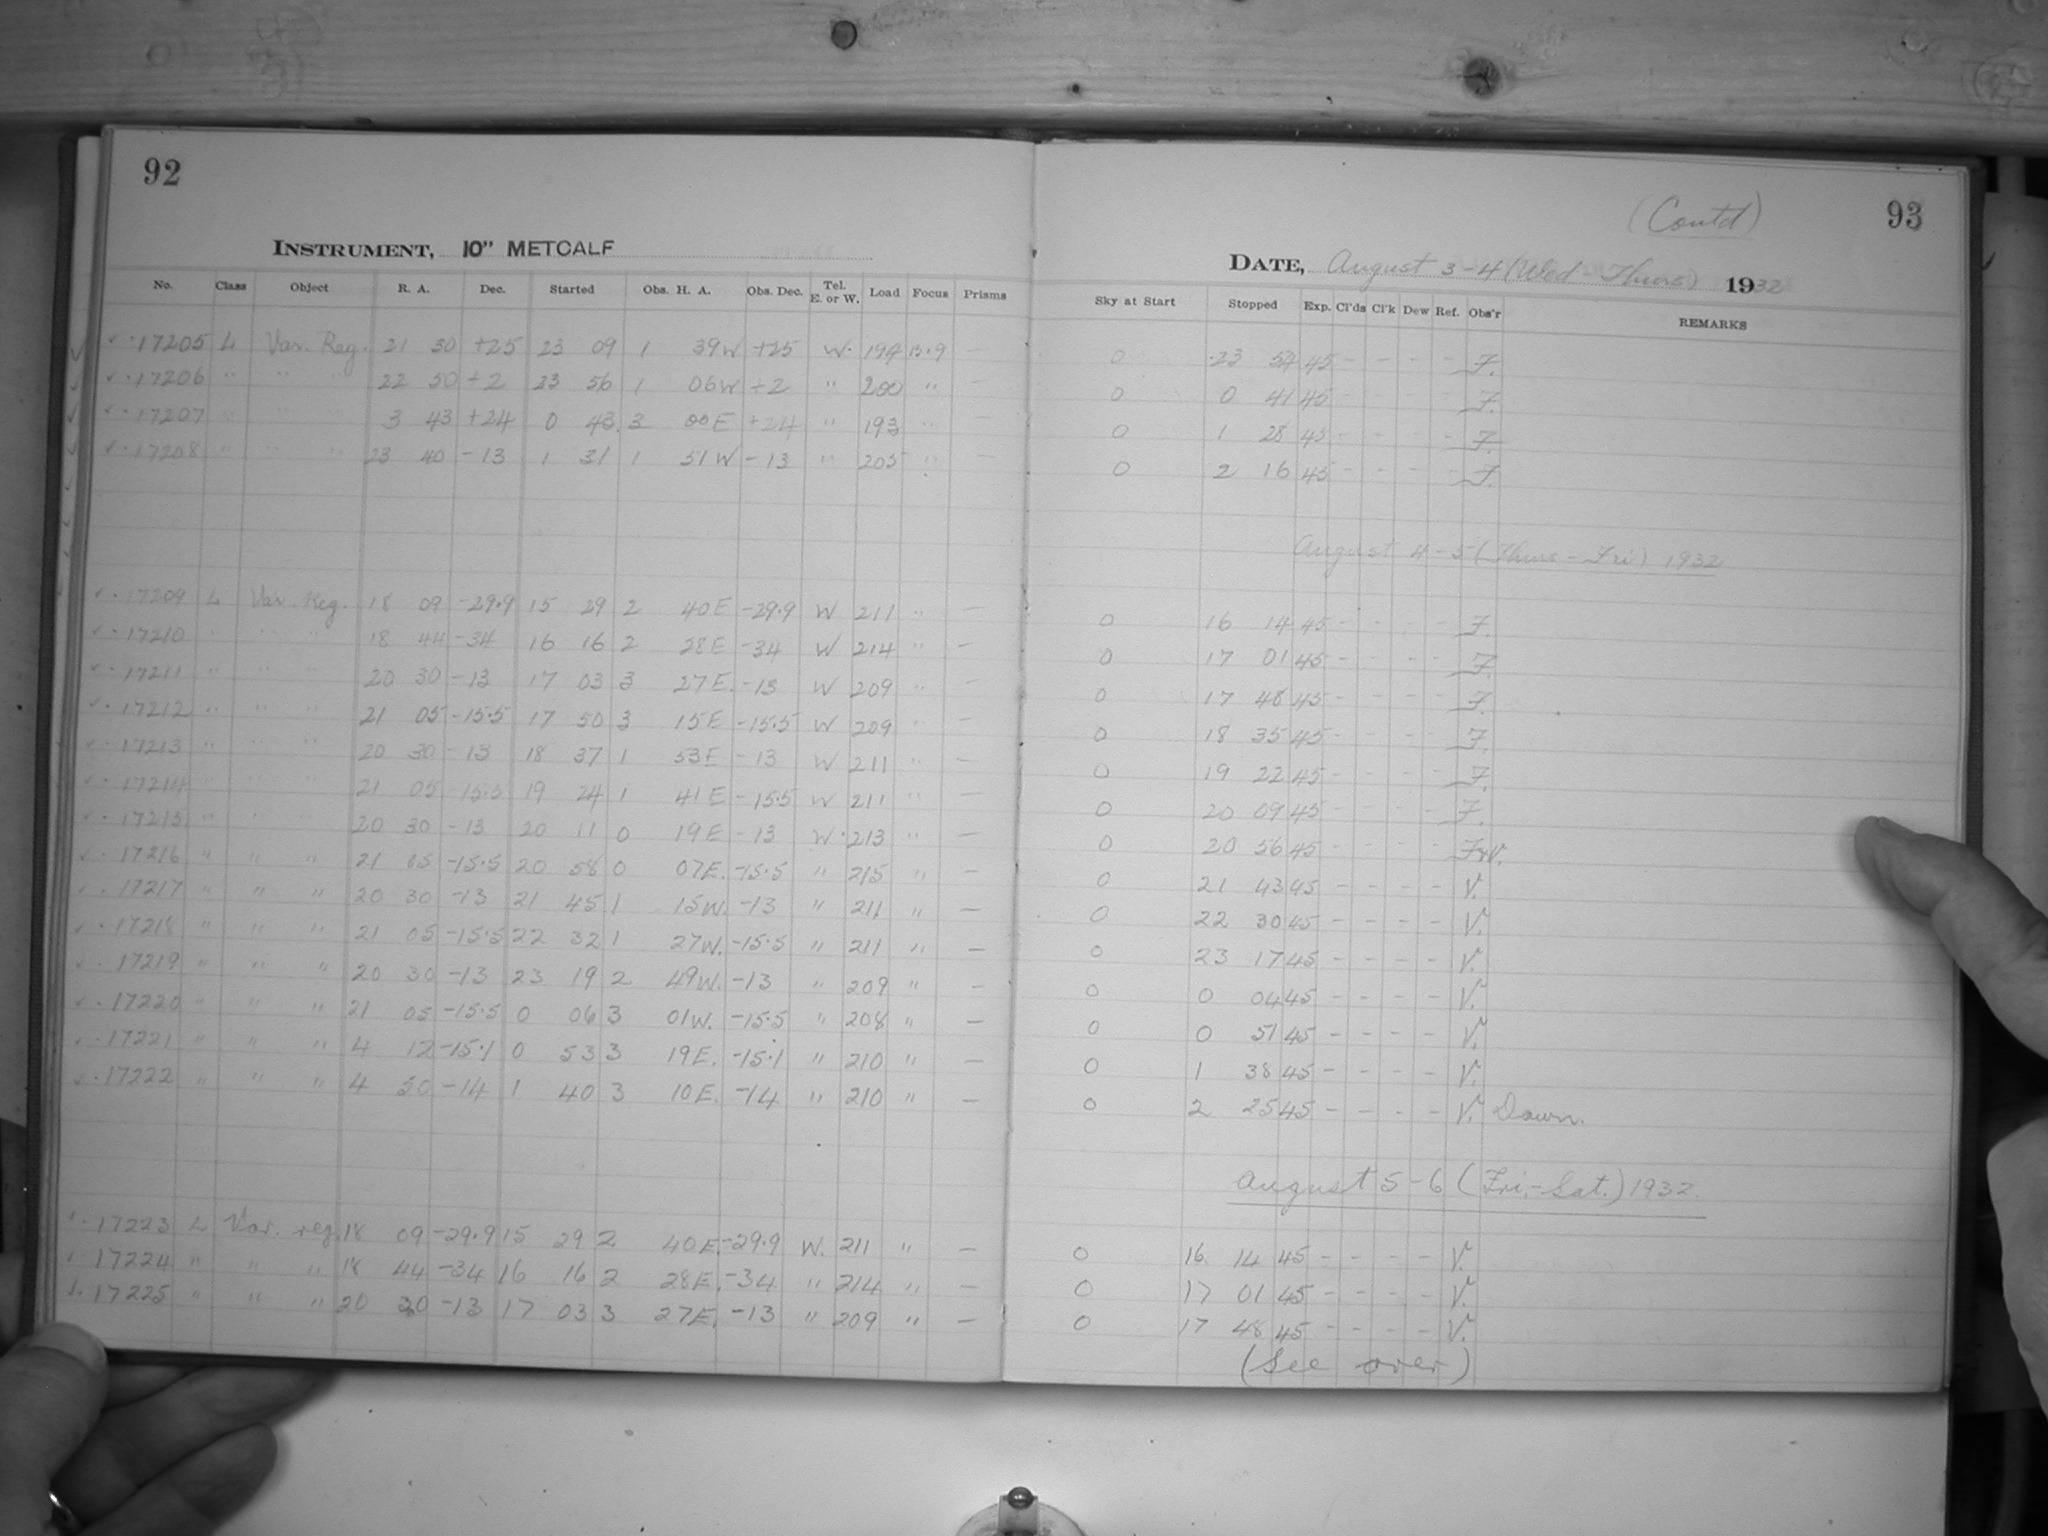 92
INSTRUMENT, 10" METCALF
No. Class Object R. A. Dec. Started Obs. H. A. Obs. Dec. Tel. E. or W. Load Focus Prisms
17205 L Var. Reg. 21 30 +25 23 09 1 39W +25 W. 194 13.9 –
17206 " " " 22 50 +2 23 56 1 06W +2 " 200 " –
17207 " " " 3 43 +24 0 43 3 00E +24 " 193 " –
17208 " " " 23 40 -13 1 31 1 51W -13 " 205 " –
17209 L Var. Reg. 18 09 -29.9 15 29 2 40E -29.9 W 211 " –
17210 " " " 18 44 -34 16 16 2 28E -34 W 214 " –
17211 " " " 20 30 -13 17 03 3 27E. -13 W 209 " –
17212 " " " 21 05 -15.5 17 50 3 15E -15.5 W 209 " –
17213 " " " 20 30 -13 18 37 1 53E -13 W 211 " –
17214 " " " 21 05 -15.5 19 24 1 41E -15.5 W 211 " –
17215 " " " 20 30 -13 20 11 0 19E -13 W. 213 " –
17216 " " " 21 05 -15.5 20 58 0 07E. -15.5 " 215 " –
17217 " " " 20 30 -13 21 45 1 15W. -13 " 211 " –
17218 " " " 21 05 -15.5 22 32 1 27W. -15.5 " 211 " –
17219 " " " 20 30 -13 23 19 2 49W. -13 " 209 " –
17220 " " " 21 05 -15.5 0 06 3 01W. -15.5 " 208 " –
17221 " " " 4 12 -15.1 0 53 3 19E. -15.1 " 210 " –
17222 " " " 4 50 -14 1 40 3 10E. -14 " 210 " –
17223 L Var. reg. 18 09 -29.9 15 29 2 40E. -29.9 W. 211 " –
17224 " " " 18 44 -34 16 16 2 28E. -34 " 214 " –
17225 " " " 20 30 -13 17 03 3 27E. -13 " 209 " –
(Contd) 93
DATE, August 3-4 (Wed-Thurs) 1932
Sky at Start Stopped Exp. Cl'ds Cl'k Dew Ref. Obs'r REMARKS
0 23 54 45 - - - - F.
0 0 41 45 - - - - F.
0 1 28 45 - - - - F.
0 2 16 45 - - - - F.
August 4-5 (Thurs-Fri) 1932
0 16 14 45 - - - - F.
0 17 01 45 - - - - F.
0 17 48 45 - - - - F.
0 18 35 45 - - - - F.
0 19 22 45 - - - - F.
0 20 09 45 - - - - F.
0 20 56 45 - - - -
0 21 43 45 - - - - V.
0 22 30 45 - - - - V.
0 23 17 45 - - - - V.
0 0 04 45 - - - - V.
0 0 51 45 - - - - V.
0 1 38 45 - - - - V.
0 2 25 45 - - - - V. Dawn.
August 5-6 (Fri.-Sat.) 1932.
0 16 14 45 - - - - V.
0 17 01 45 - - - - V.
0 17 48 45 - - - - V.
(See over)